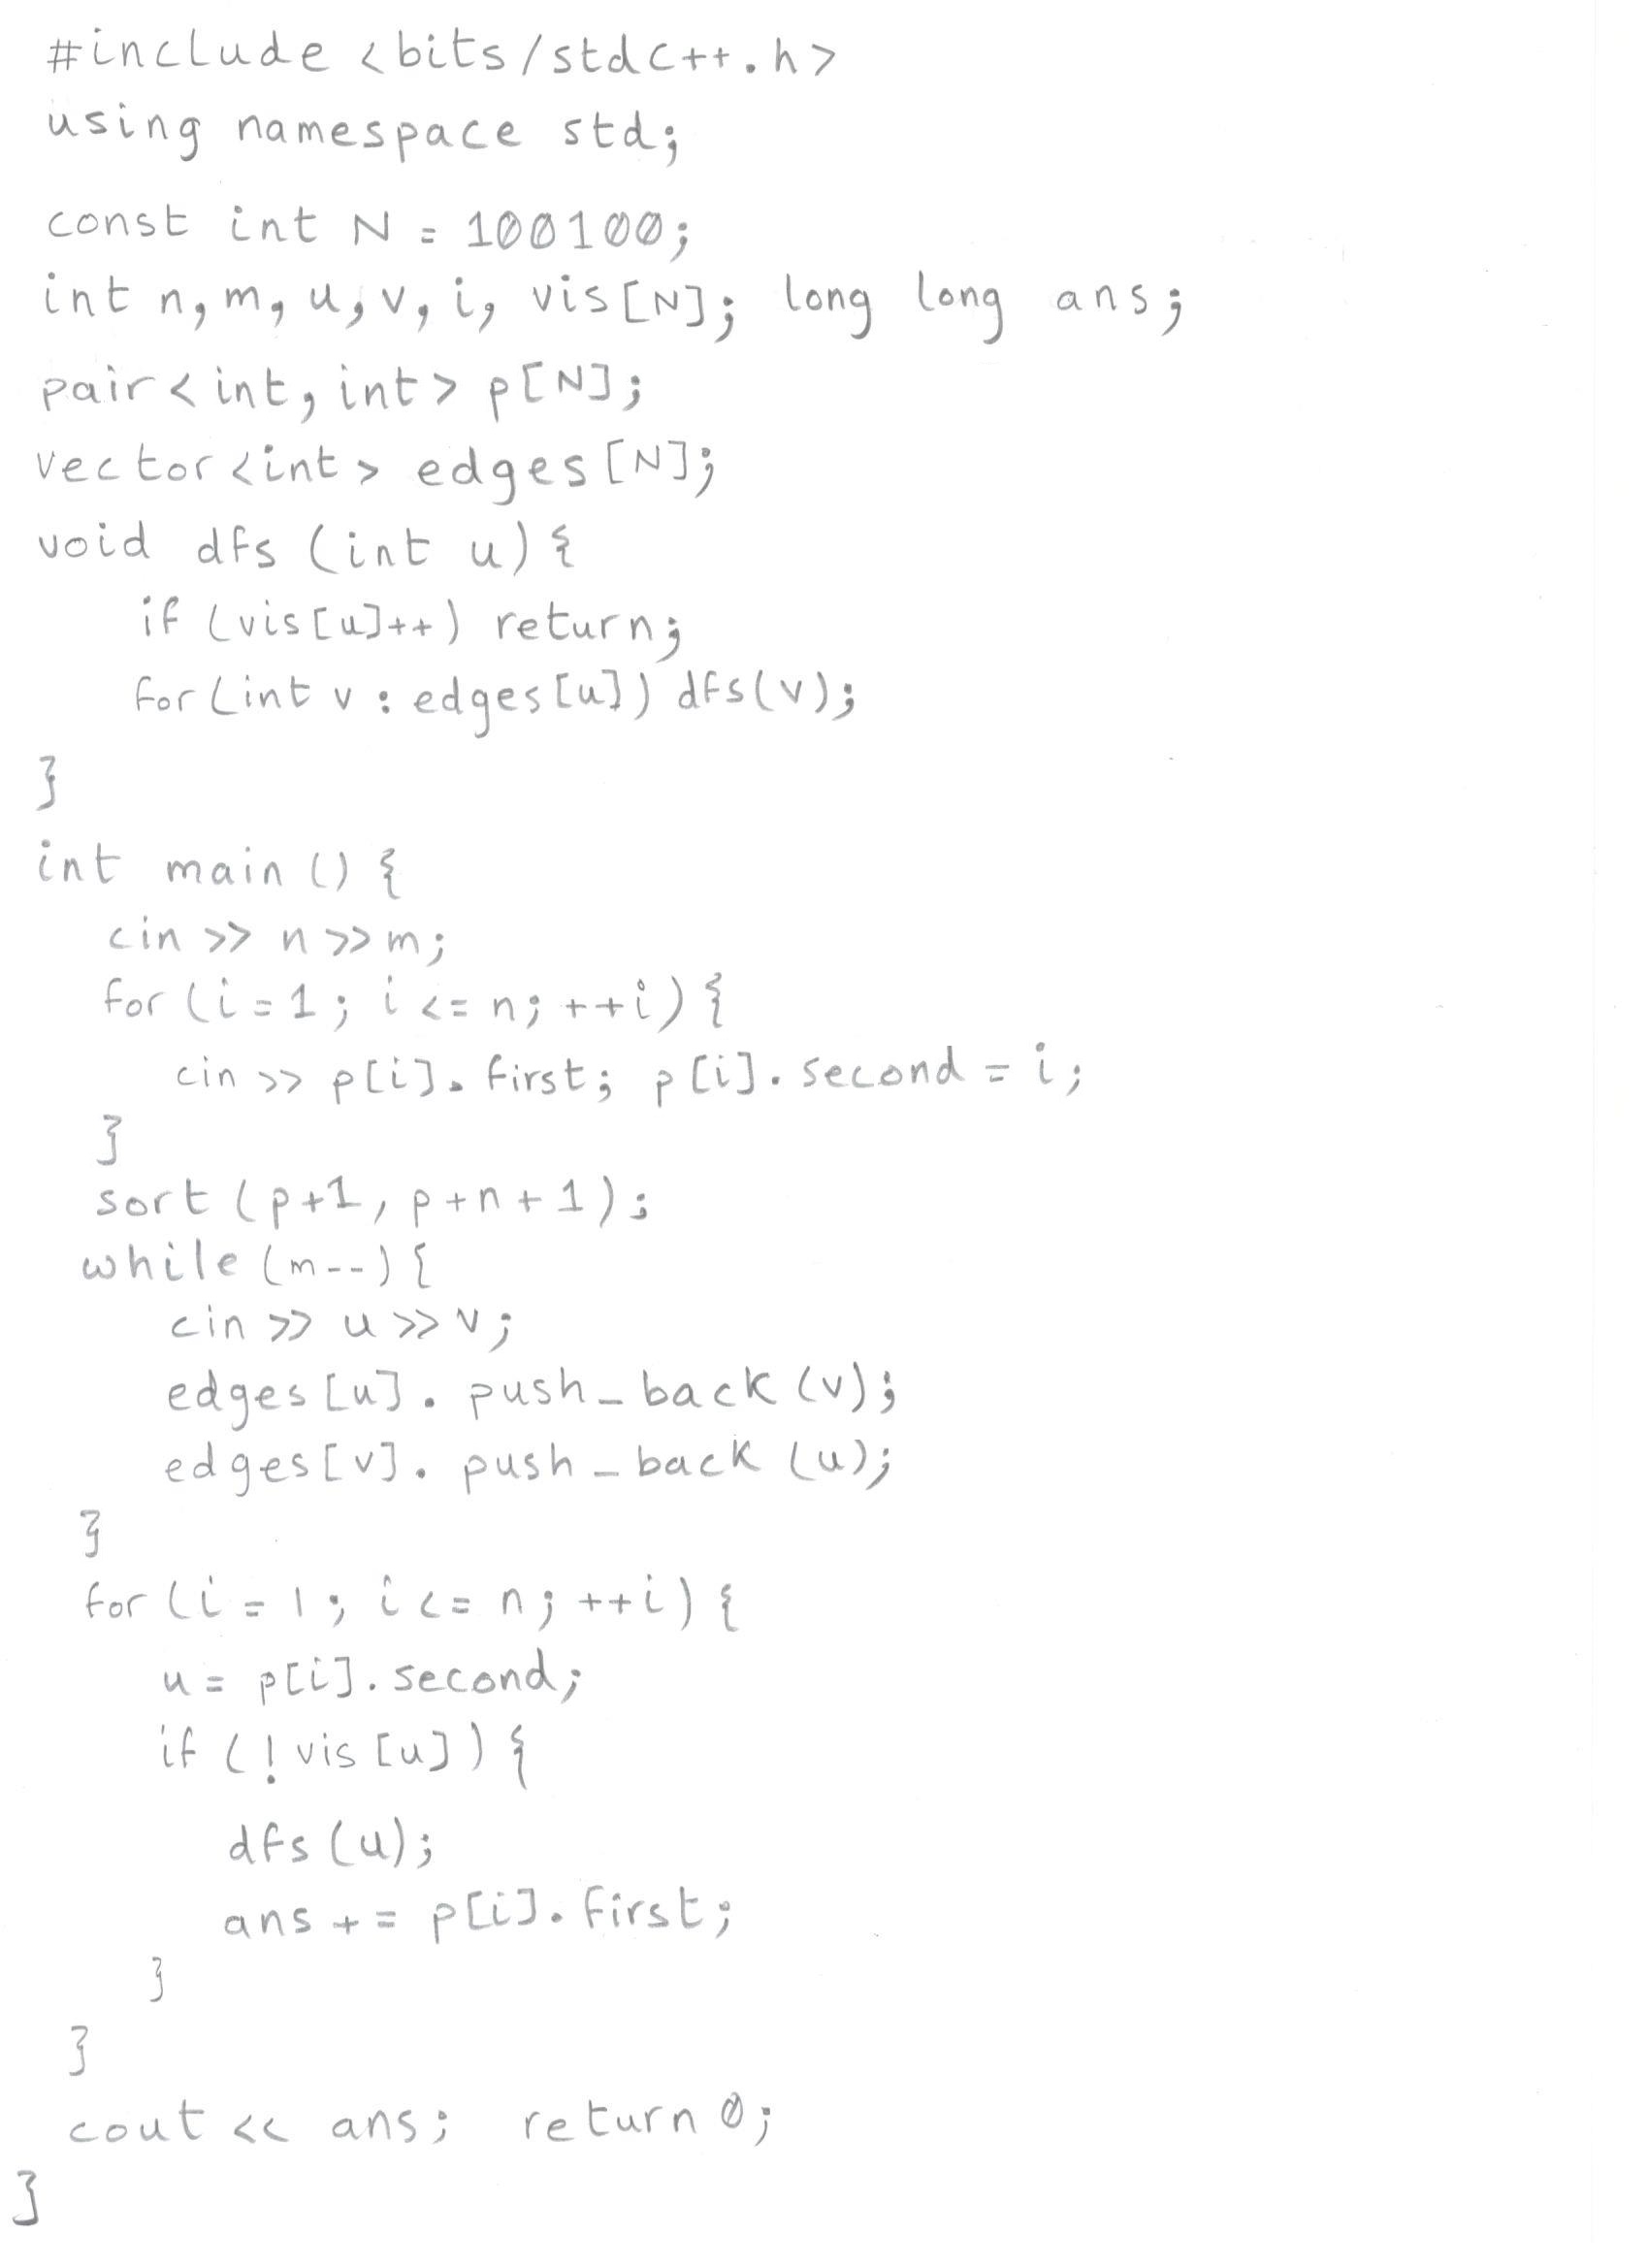 #include <bits/stdc++.h>
using namespace std;
const int N = 100100;
int n, m, u, v, i, vis[N]; long long ans;
pair<int, int> p[N];
vector<int> edges[N];
void dfs (int u) {
if (vis[u]++) return;
for (int v : edges[u]) dfs(v);
}
int main () {
cin >> n >> m;
for (i = 1; i <= n; ++i) {
cin >> p[i].first; p[i].second = i;
}
sort (p+1, p+n+1);
while (m--) {
cin >> u >> v;
edges[u].push_back (v);
edges[v].push_back (u);
}
for (i = 1; i <= n; ++i) {
u = p[i].second;
if (!vis[u]) {
dfs (u);
ans += p[i].first;
}
}
cout << ans; return 0;
}